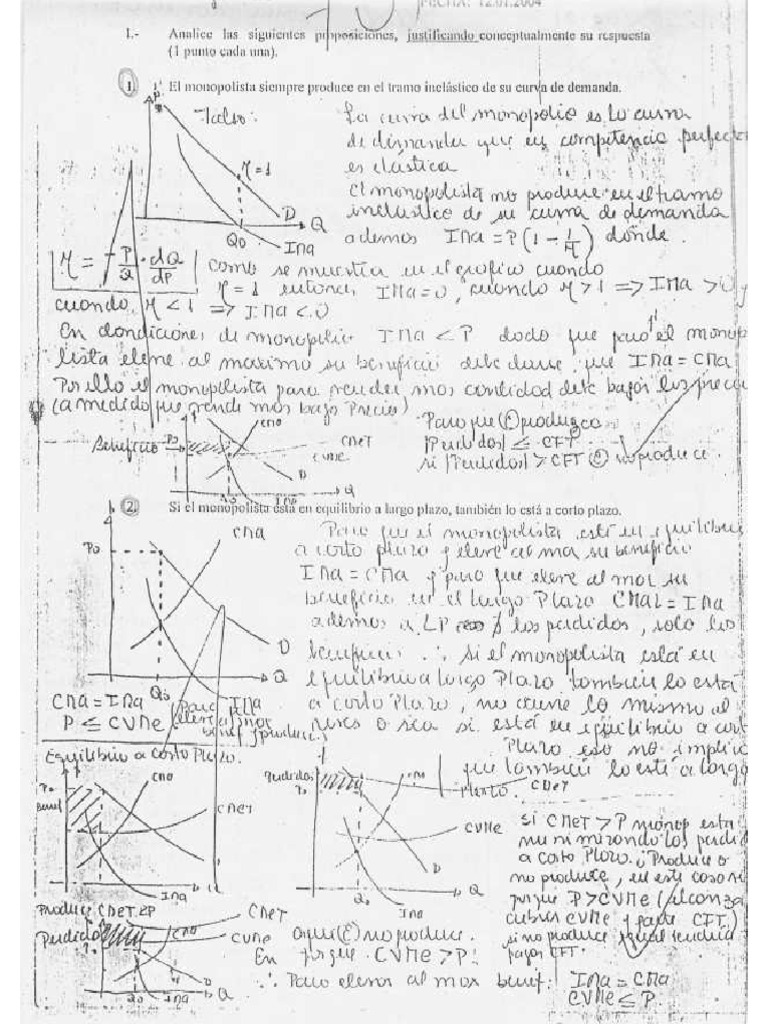 FECHA: 12.01.2004
I.- Analice las siguientes proposiciones, justificando conceptualmente su respuesta
(1 punto cada una).
1. El monopolista siempre produce en el tramo inelástico de su curva de demanda.
Falso:
La curva del monopolio es la curva
de demanda que en competencia perfecta
es elástica
El monopolista no produce en el tramo
inelástico de su curva de demanda
ademas IMa = P(1 - 1/η) donde
η = 1
D
Q
Q0
IMa
η = - P/Q · dQ/dP
como se muestra en el gráfico cuando
η = 1 entonces IMa = 0, cuando η > 1 => IMa > 0 y
cuando η < 1 => IMa < 0
En condiciones de monopolio IMa < P dado que para el monopo
lista eleve al maximo su beneficio debe darse que IMa = CMa
Por ello el monopolista para vender mas cantidad debe bajar los precios
(a medida que vende mas bajo Precio)
Para que (E) produzca
|Perdidas| ≤ CFT
si |Perdidas| > CFT (E) no produce.
Beneficio
P0
CMa
CMeT
CVMe
D
Q
Q0
IMa
2. Si el monopolista está en equilibrio a largo plazo, también lo está a corto plazo.
Para que el monopolista esté en equilibrio
a corto plazo y eleve al max su beneficio
IMa = CMa y para que eleve al max su
beneficio en el largo Plazo CMaL = IMa
ademas a LP los perdidas, solo los
beneficios ∴ si el monopolista está en
equilibrio a largo Plazo tambien lo está
a corto Plazo, no ocurre lo mismo al
reves o sea si está en equilibrio a corto
Plazo eso no implica
que tambien lo esté a largo
plazo.
P0
CMa
D
Q
Q0
IMa
CMa = IMa
P ≤ CVMe
(Para
elevar al max
benef. (produce.)
Equilibrio a corto Plazo.
P0
Benef
CMa
CMeT
CVMe
IMa
Perdidas
CMa
CMeT
CVMe
D
Q
Q0
IMa
si CMeT > P monop esta
minimizando las perdidas
a corto Plazo. ¿Produce o
no produce, en este caso si
porque P > CVMe (Alcanza
cubrir CVMe y parte CFT)
si no produce igual tendria
pagar CFT.
Produce CMeT ≤ P
Perdida
CMeT
CMa
CVMe
D
Q
Q0
IMa
aqui (E) no produce.
En porque CVMe > P!
∴ Para elevar al max benef: IMa = CMa
CVMe ≤ P.